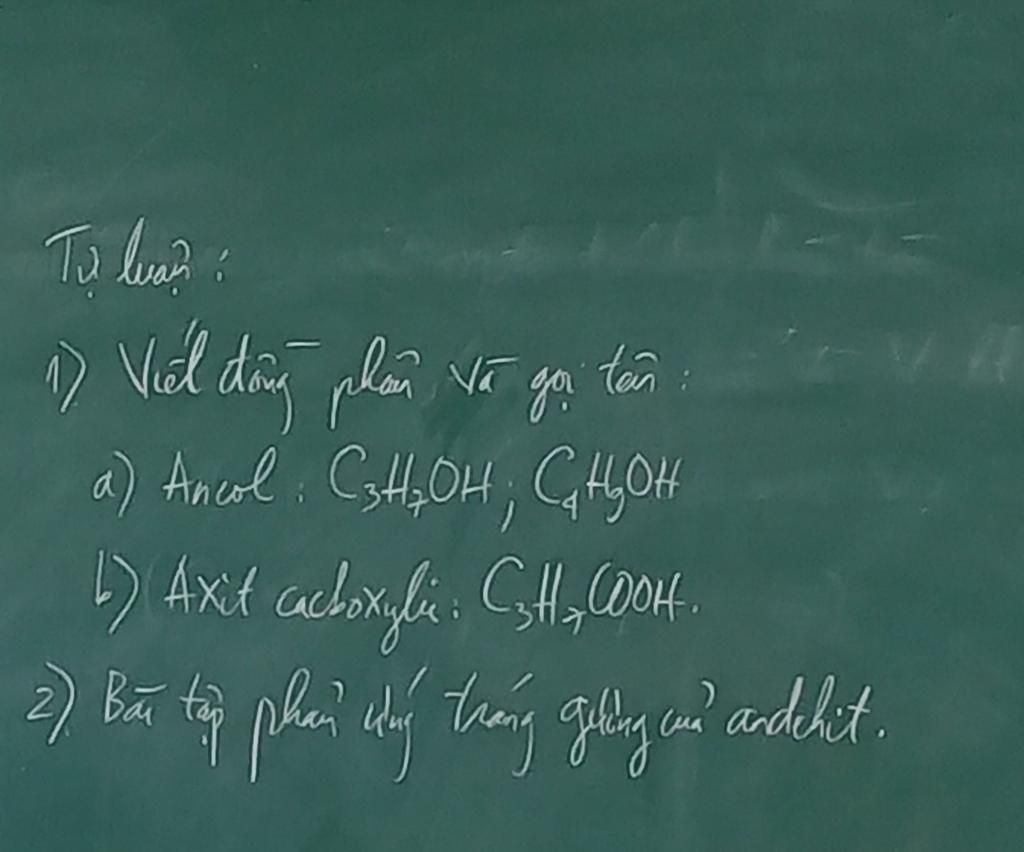 Tự luận :
1) Viết đồng phân và gọi tên :
a) Ancol : C₃H₇OH ; C₄H₉OH
b) Axit cacboxylic : C₃H₇COOH.
2) Bài tập phản ứng tráng gương của andehit.